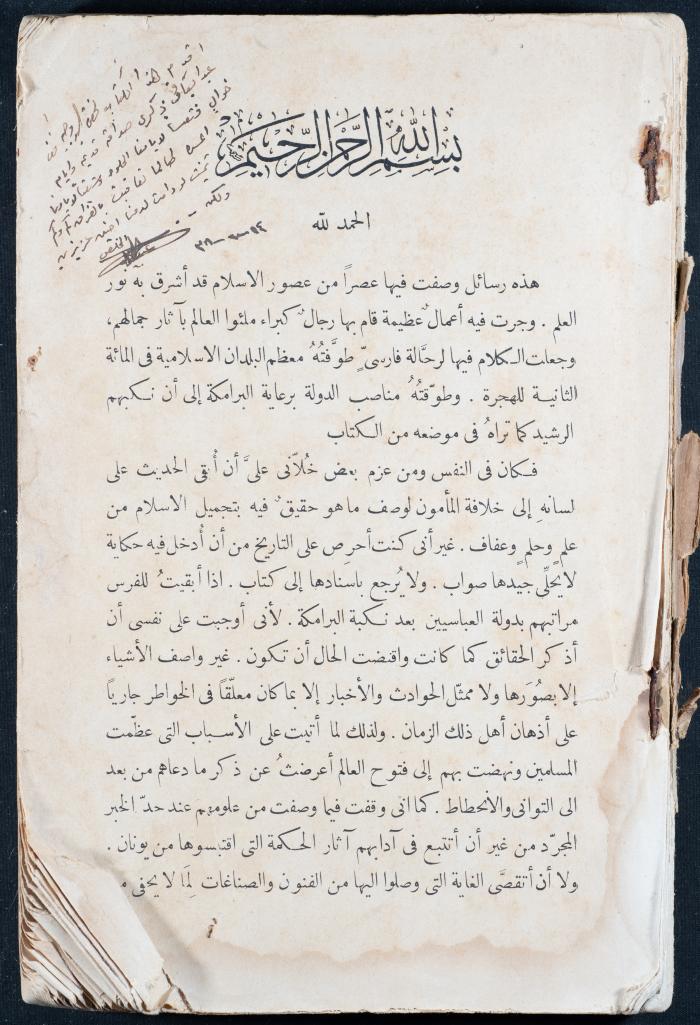 بسم الله الرحمن الرحيم
الحمد لله
هذه رسائل وصفت فيها عصراً من عصور الاسلام قد أشرق به نور
العلم . وجرت فيه أعمالٌ عظيمة قام بها رجالٌ كبراء ملئوا العالم بآثار جمالهم،
وجعلت الكلام فيها لرحّالة فارسىّ طوَّفتُهُ معظم البلدان الاسلامية فى المائة
الثانية للهجرة . وطوّقتُهُ مناصب الدولة برعاية البرامكة إلى أن نكبهم
الرشيد كما تراهُ فى موضعه من الكتاب
فكان فى النفس ومن عزم بعض خُلاّنى علىَّ أن أُبقى الحديث على
لسانهِ إلى خلافة المأمون لوصف ما هو حقيقٌ فيه بتجميل الاسلام من
علمٍ وحلمٍ وعفاف . غير أنى كنت أحرص على التاريخ من أن أُدخل فيه حكاية
لا يحلِّى جيدها صواب . ولا يُرجع باسنادها إلى كتاب . اذا أبقيتُ للفرس
مراتبهم بدولة العباسيين بعد نكبة البرامكة . لأنى أوجبت على نفسى أن
أذكر الحقائق كما كانت واقتضت الحال أن تكون . غير واصف الأشياء
إلا بصُوَرها ولا ممثّل الحوادث والأخبار إلا بما كان معلّقاً فى الخواطر جارياً
على أذهان أهل ذلك الزمان . ولذلك لما أتيت على الأسباب التى عظّمت
المسلمين ونهضت بهم إلى فتوح العالم أعرضتُ عن ذكر ما دعاهم من بعد
الى التوانى والانحطاط . كما انى وقفت فيما وصفت من علومهم عند حدّ الخبر
المجرّد من غير أن أتتبع فى آدابهم آثار الحكمة التى اقتبسوها من يونان .
ولا أن أتقصَّى الغاية التى وصلوا اليها من الفنون والصناعات لِمَا لا يخفى